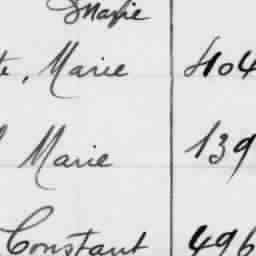 Marie
te, Marie 404
Marie 139
Constant 496